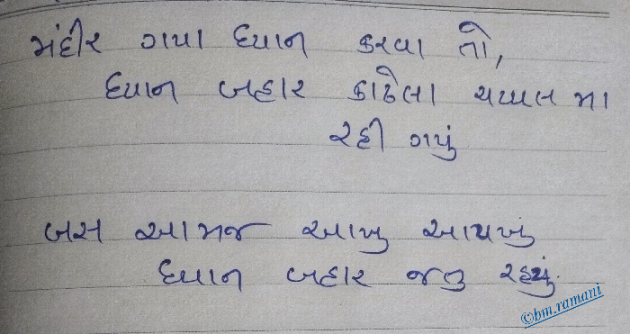 મંદીર ગયા ધ્યાન કરવા તો,
ધ્યાન બહાર કાઢેલા ચપ્પલ મા
રહી ગયું
બસ આમજ આખુ આયખું
ધ્યાન બહાર જતુ રહ્યું.
©bm.ramani